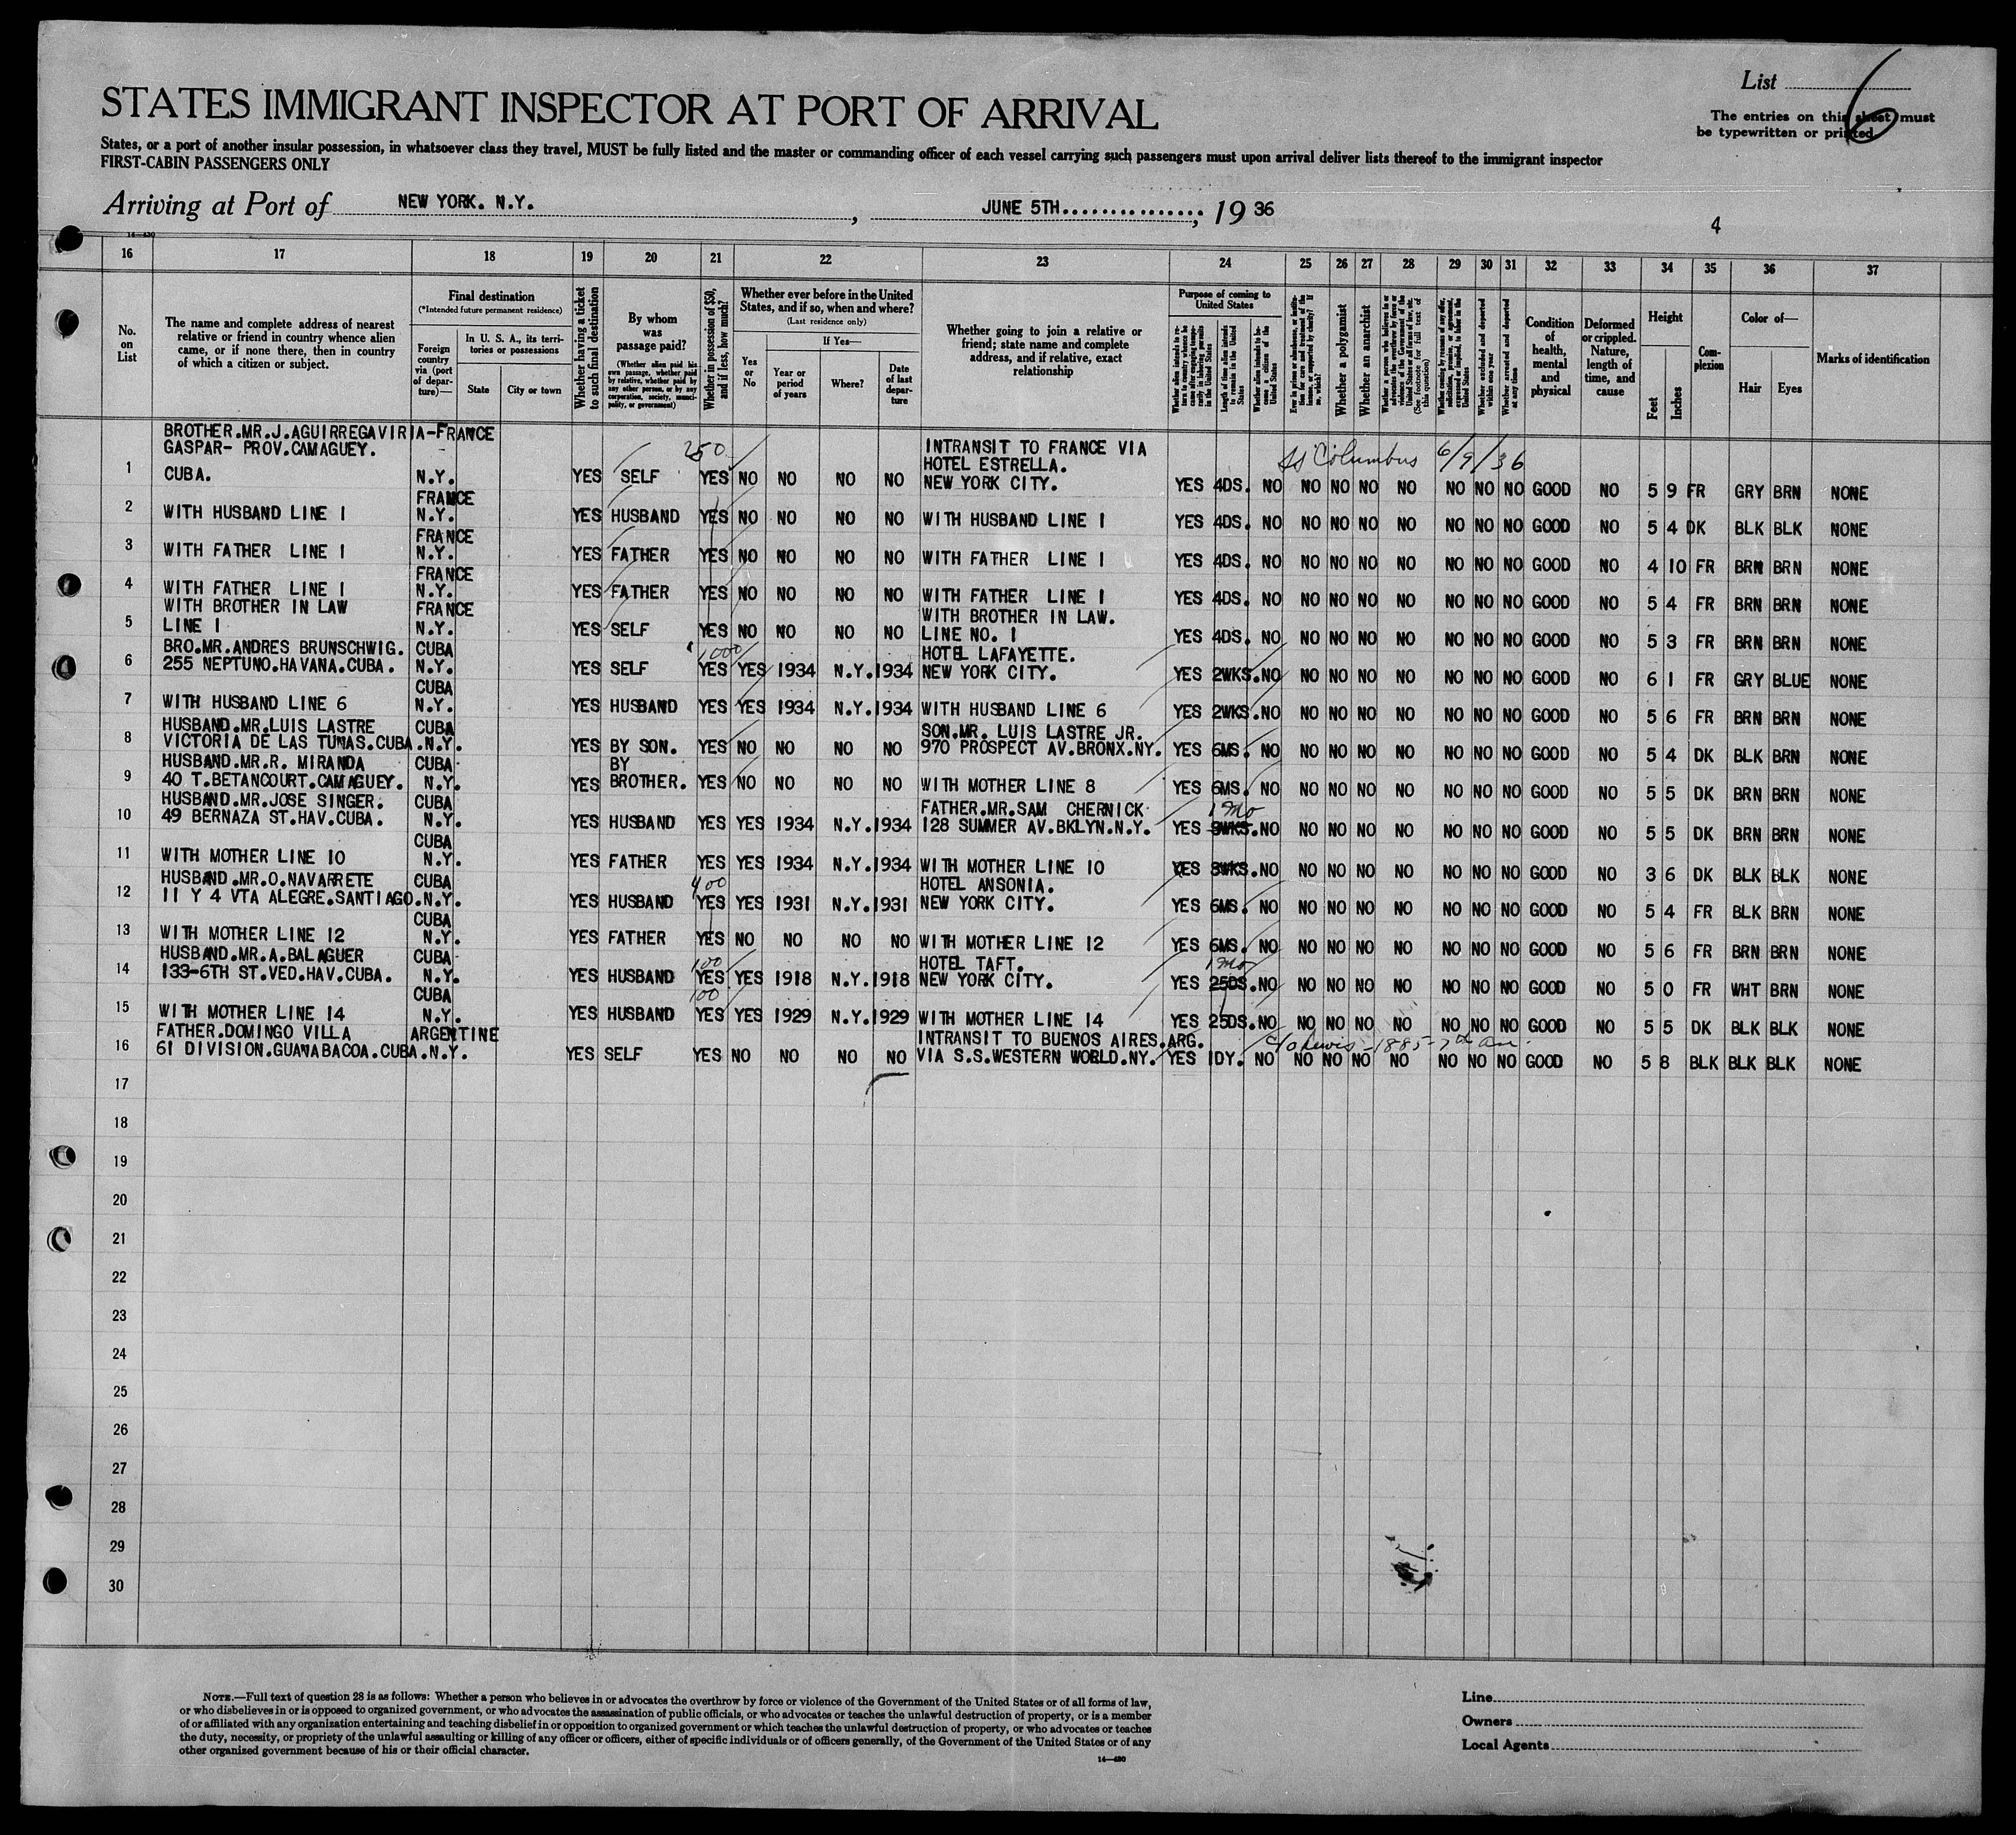 List 6
STATES IMMIGRANT INSPECTOR AT PORT OF ARRIVAL
The entries on this sheet must
be typewritten or printed.
States, or a port of another insular possession, in whatsoever class they travel, MUST be fully listed and the master or commanding officer of each vessel carrying such passengers must upon arrival deliver lists thereof to the immigrant inspector
FIRST-CABIN PASSENGERS ONLY
Arriving at Port of NEW YORK. N.Y. , JUNE 5TH.............., 19 36
4
14—430
16 17 18 19 20 21 22 23 24 25 26 27 28 29 30 31 32 33 34 35 36 37
No. on List
The name and complete address of nearest relative or friend in country whence alien came, or if none there, then in country of which a citizen or subject.
Final destination
(*Intended future permanent residence)
Foreign country via (port of departure)—
In U. S. A., its territories or possessions
State
City or town
Whether having a ticket to such final destination
By whom was passage paid?
(Whether alien paid his own passage, whether paid by relative, whether paid by any other person, or by any corporation, society, municipality, or government)
Whether in possession of $50, and if less, how much?
Whether ever before in the United States, and if so, when and where?
(Last residence only)
Yes or No
If Yes—
Year or period of years
Where?
Date of last departure
Whether going to join a relative or friend; state name and complete address, and if relative, exact relationship
Purpose of coming to United States
Length of time alien intends to remain in the United States
Whether alien intends to become a citizen of the United States
Whether a polygamist
Whether an anarchist
Whether excluded and deported within one year
Whether arrested and deported at any time
Condition of health, mental and physical
Deformed or crippled. Nature, length of time, and cause
Height
Feet
Inches
Complexion
Color of—
Hair
Eyes
Marks of identification
BROTHER.MR.J.AGUIRREGAVIRIA-FRANCE
GASPAR- PROV.CAMAGUEY. 250 INTRANSIT TO FRANCE VIA SS Columbus 6/9/36
HOTEL ESTRELLA.
1 CUBA. N.Y. YES SELF YES NO NO NO NO NEW YORK CITY. YES 4DS. NO NO NO NO NO NO NO NO GOOD NO 5 9 FR GRY BRN NONE
FRANCE
2 WITH HUSBAND LINE 1 N.Y. YES HUSBAND YES NO NO NO NO WITH HUSBAND LINE 1 YES 4DS. NO NO NO NO NO NO NO NO GOOD NO 5 4 DK BLK BLK NONE
FRANCE
3 WITH FATHER LINE 1 N.Y. YES FATHER YES NO NO NO NO WITH FATHER LINE 1 YES 4DS. NO NO NO NO NO NO NO NO GOOD NO 4 10 FR BRN BRN NONE
FRANCE
4 WITH FATHER LINE 1 N.Y. YES FATHER YES NO NO NO NO WITH FATHER LINE 1 YES 4DS. NO NO NO NO NO NO NO NO GOOD NO 5 4 FR BRN BRN NONE
WITH BROTHER IN LAW FRANCE WITH BROTHER IN LAW.
5 LINE 1 N.Y. YES SELF YES NO NO NO NO LINE NO. 1 YES 4DS. NO NO NO NO NO NO NO NO GOOD NO 5 3 FR BRN BRN NONE
BRO.MR.ANDRES BRUNSCHWIG. CUBA 1000 HOTEL LAFAYETTE.
6 255 NEPTUNO.HAVANA.CUBA. N.Y. YES SELF YES YES 1934 N.Y. 1934 NEW YORK CITY. YES 2WKS. NO NO NO NO NO NO NO NO GOOD NO 6 1 FR GRY BLUE NONE
CUBA
7 WITH HUSBAND LINE 6 N.Y. YES HUSBAND YES YES 1934 N.Y. 1934 WITH HUSBAND LINE 6 YES 2WKS. NO NO NO NO NO NO NO NO GOOD NO 5 6 FR BRN BRN NONE
HUSBAND.MR.LUIS LASTRE CUBA SON.MR. LUIS LASTRE JR.
8 VICTORIA DE LAS TUNAS.CUBA. N.Y. YES BY SON. YES NO NO NO NO 970 PROSPECT AV.BRONX.NY. YES 6MS. NO NO NO NO NO NO NO NO GOOD NO 5 4 DK BLK BRN NONE
HUSBAND.MR.R. MIRANDA CUBA BY
9 40 T.BETANCOURT.CAMAGUEY. N.Y. YES BROTHER. YES NO NO NO NO WITH MOTHER LINE 8 YES 6MS. NO NO NO NO NO NO NO NO GOOD NO 5 5 DK BRN BRN NONE
HUSBAND.MR.JOSE SINGER. CUBA FATHER.MR.SAM CHERNICK 1 Mo
10 49 BERNAZA ST.HAV.CUBA. N.Y. YES HUSBAND YES YES 1934 N.Y. 1934 128 SUMMER AV.BKLYN.N.Y. YES 3WKS. NO NO NO NO NO NO NO NO GOOD NO 5 5 DK BRN BRN NONE
CUBA
11 WITH MOTHER LINE 10 N.Y. YES FATHER YES YES 1934 N.Y. 1934 WITH MOTHER LINE 10 YES 3WKS. NO NO NO NO NO NO NO NO GOOD NO 3 6 DK BLK BLK NONE
HUSBAND.MR.O.NAVARRETE CUBA 400 HOTEL ANSONIA.
12 11 Y 4 VTA ALEGRE.SANTIAGO. N.Y. YES HUSBAND YES YES 1931 N.Y. 1931 NEW YORK CITY. YES 6MS. NO NO NO NO NO NO NO NO GOOD NO 5 4 FR BLK BRN NONE
CUBA
13 WITH MOTHER LINE 12 N.Y. YES FATHER YES NO NO NO NO WITH MOTHER LINE 12 YES 6MS. NO NO NO NO NO NO NO NO GOOD NO 5 6 FR BRN BRN NONE
HUSBAND.MR.A.BALAGUER CUBA 100 HOTEL TAFT. 1 Mo
14 133-6TH ST.VED.HAV.CUBA. N.Y. YES HUSBAND YES YES 1918 N.Y. 1918 NEW YORK CITY. YES 25DS. NO NO NO NO NO NO NO NO GOOD NO 5 0 FR WHT BRN NONE
CUBA 100
15 WITH MOTHER LINE 14 N.Y. YES HUSBAND YES YES 1929 N.Y. 1929 WITH MOTHER LINE 14 YES 25DS. NO NO NO NO NO NO NO NO GOOD NO 5 5 DK BLK BLK NONE
FATHER.DOMINGO VILLA ARGENTINE INTRANSIT TO BUENOS AIRES.ARG. c/o Lewis - 1885 - 7th Av.
16 61 DIVISION.GUANABACOA.CUBA. N.Y. YES SELF YES NO NO NO NO VIA S.S.WESTERN WORLD.NY. YES 1DY. NO NO NO NO NO NO NO NO GOOD NO 5 8 BLK BLK BLK NONE
17
18
19
20
21
22
23
24
25
26
27
28
29
30
NOTE.—Full text of question 28 is as follows: Whether a person who believes in or advocates the overthrow by force or violence of the Government of the United States or of all forms of law,
or who disbelieves in or is opposed to organized government, or who advocates the assassination of public officials, or who advocates or teaches the unlawful destruction of property, or is a member
of or affiliated with any organization entertaining and teaching disbelief in or opposition to organized government or which teaches the unlawful destruction of property, or who advocates or teaches
the duty, necessity, or propriety of the unlawful assaulting or killing of any officer or officers, either of specific individuals or of officers generally, of the Government of the United States or of any
other organized government because of his or their official character.
14—430
Line
Owners
Local Agents